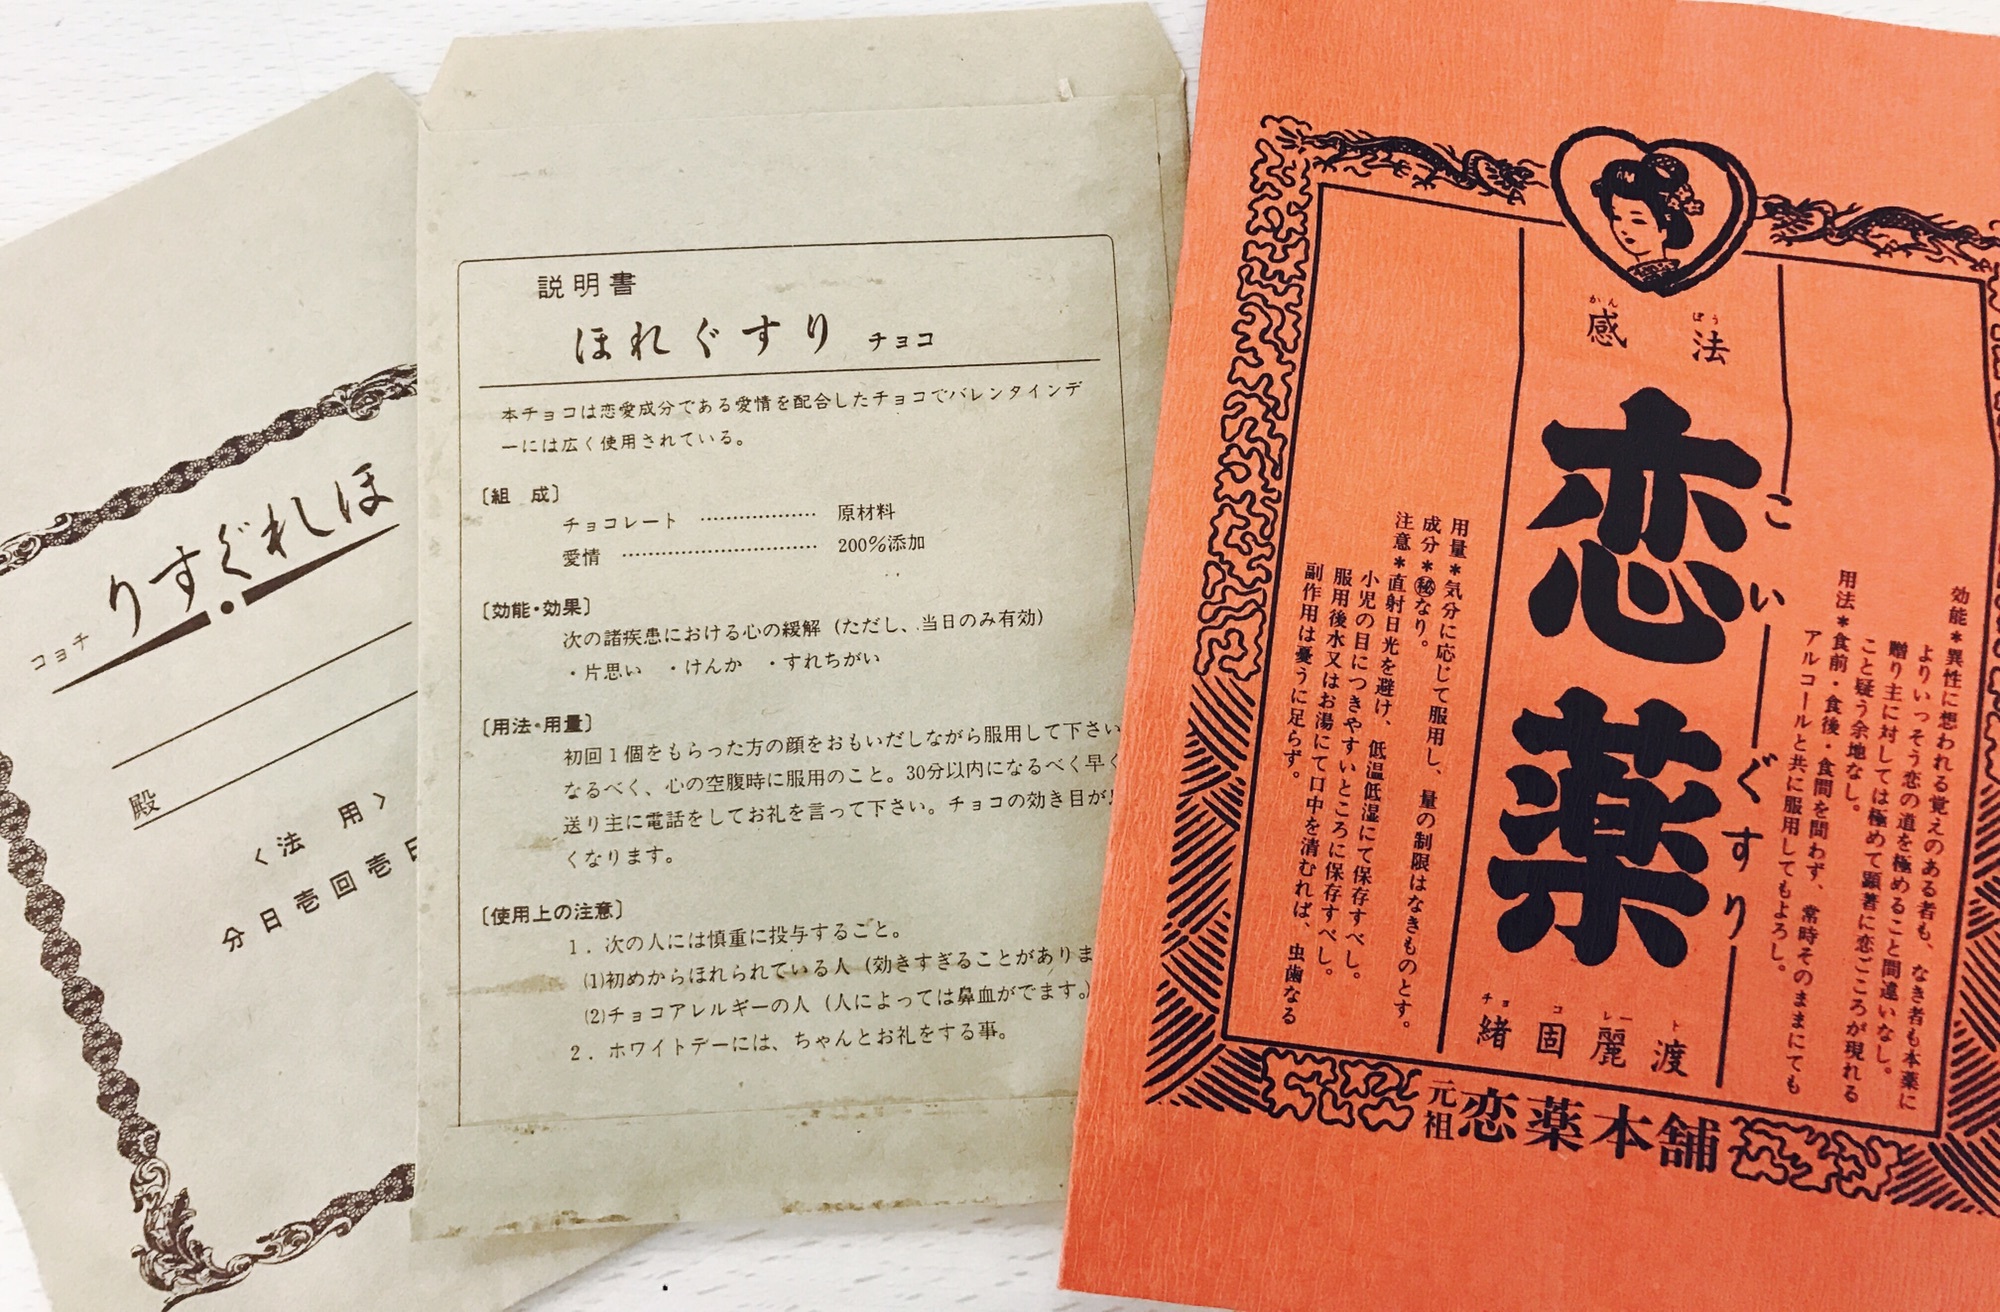 りすぐれほ
コョチ
殿
〈法　用〉
分日壱回壱日
説明書
ほれぐすり チョコ
本チョコは恋愛成分である愛情を配合したチョコでバレンタインデ
ーには広く使用されている。
〔組　成〕
チョコレート ……………… 原材料
愛情 ………………………… 200%添加
〔効能・効果〕
次の諸疾患における心の緩解（ただし、当日のみ有効）
・片思い　・けんか　・すれちがい
〔用法・用量〕
初回1個をもらった方の顔をおもいだしながら服用して下さい
なるべく、心の空腹時に服用のこと。30分以内になるべく早く
送り主に電話をしてお礼を言って下さい。チョコの効き目が
くなります。
〔使用上の注意〕
1．次の人には慎重に投与すること。
⑴初めからほれられている人（効きすぎることがありま
⑵チョコアレルギーの人（人によっては鼻血がでます。）
2．ホワイトデーには、ちゃんとお礼をする事。
かん ぽう
感 法
恋薬
こいぐすり
効能＊異性に想われる覚えのある者も、なき者も本薬に
よりいっそう恋の道を極めること間違いなし。
贈り主に対しては極めて顕著に恋ごころが現れる
こと疑う余地なし。
用法＊食前・食後・食間を問わず、常時そのままにても
アルコールと共に服用してもよろし。
用量＊気分に応じて服用し、量の制限はなきものとす。
成分＊㊙なり。
注意＊直射日光を避け、低温低湿にて保存すべし。
小児の目につきやすいところに保存すべし。
服用後水又はお湯にて口中を清むれば、虫歯なる
副作用は憂うに足らず。
チョ コ レー ト
緒 固 麗 渡
元祖 恋薬本舗